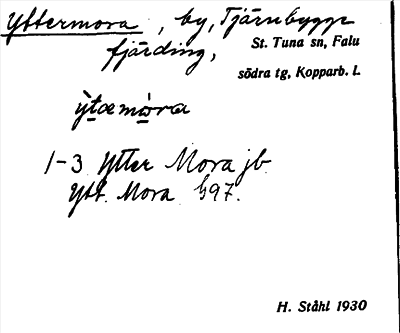 Yttermora, by, Tjärnbygge
fjärding,
St. Tuna sn, Falu
södra tg, Kopparb. l.
ỳtæmòra
1-3 Ytter Mora jb.
Ytt. Mora 597.
H. Ståhl 1930